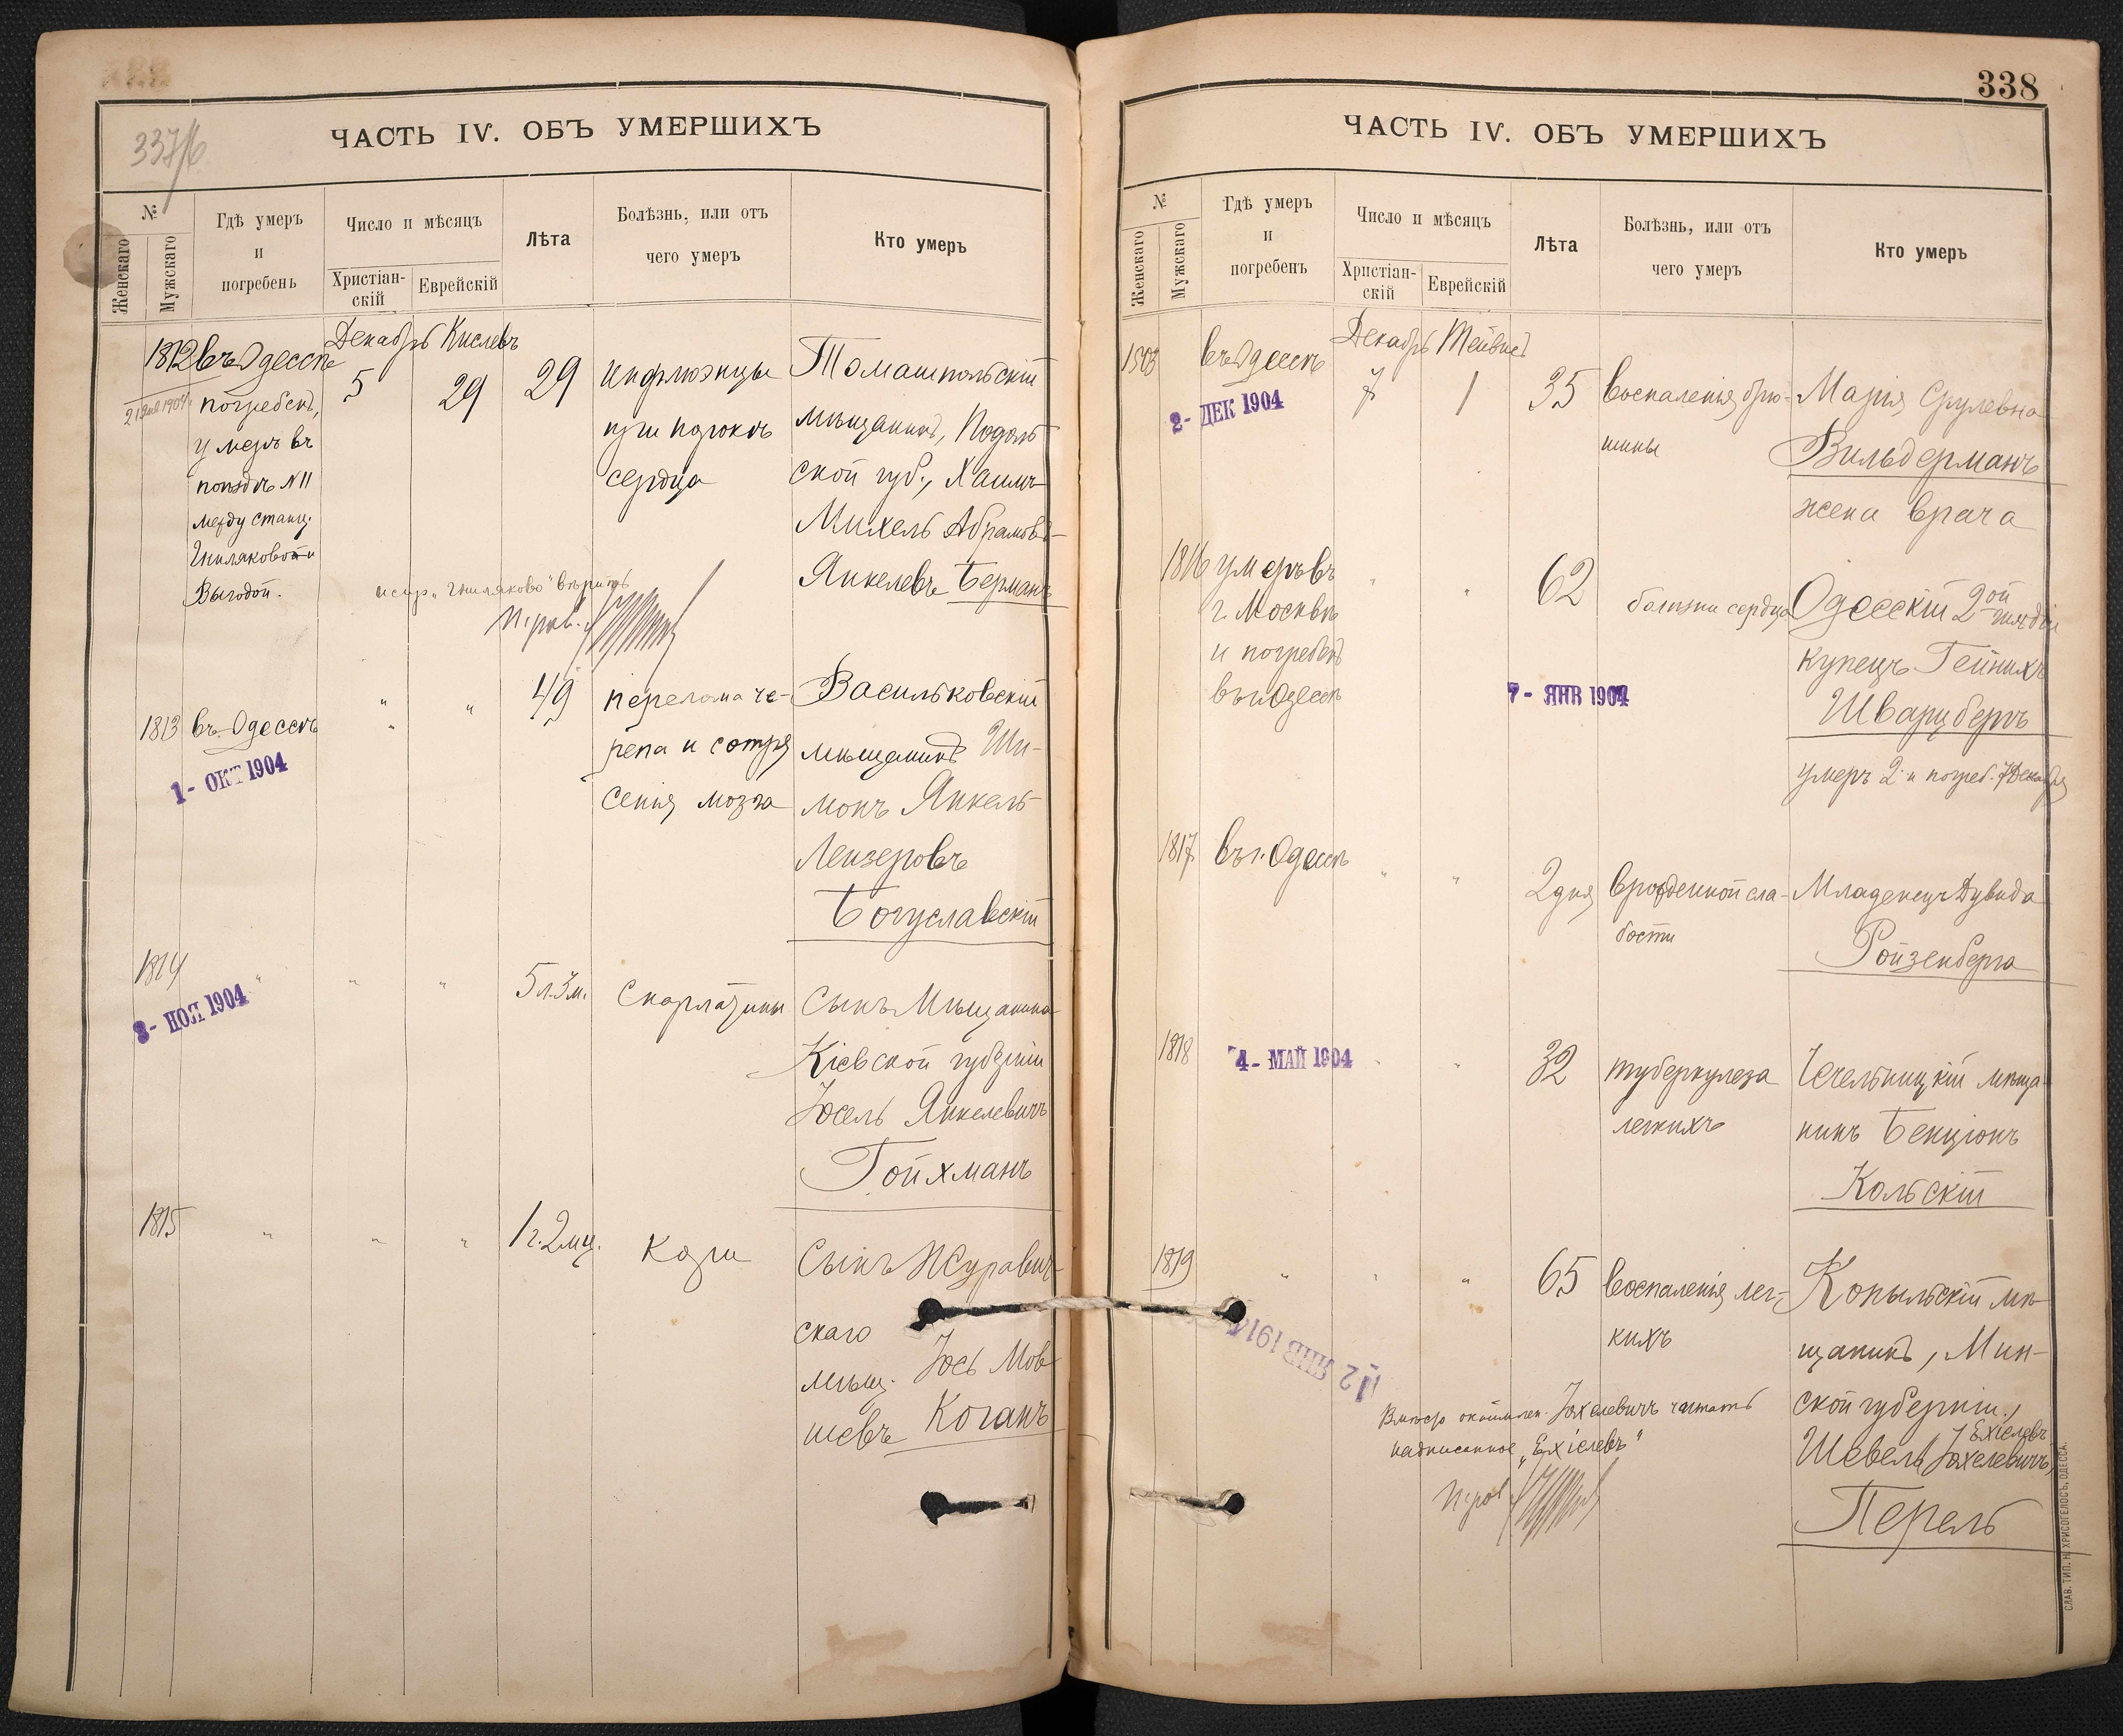 337/б
ЧАСТЬ IV. ОБЪ УМЕРШИХЪ
№
Женскаго
Мужскаго
Гдѣ умеръ
и
погребенъ
Число и мѣсяцъ
Христіан-
скій
Еврейскій
Лѣта
Болѣзнь, или отъ
чего умеръ
Кто умеръ
Декабрь Кислевъ
1812 въ Одессѣ 5 29 29 инфлюэнцы Томашпольскій
погребенъ, при порокѣ мѣщанинъ, Подоль
умеръ въ сердца ской губ., Хаимъ
поѣздѣ №11 Михель Абрамовъ-
между станц. Янкелевъ Берманъ
Гниляковой и
Выгодой.
испр. „Гниляково" вѣрить
1813 въ Одессѣ " " 49 перелома че- Васильковскій
1- ОКТ 1904 репа и сотря мѣщанинъ Ши-
сенія мозга монъ Янкель
Лейзеровъ
Богуславскій
1814 " " " 5л.3м. Скарлатины Сынъ Мѣщанина
3- НОЯ 1904 Кіевской губерніи
Іосель Янкелевичъ
Гойхманъ
1815 " " " 1г.2мц. Кори Сынъ Журавич-
скаго
мѣщ. Іось Мов
шевъ Коганъ
338
ЧАСТЬ IV. ОБЪ УМЕРШИХЪ
№
Женскаго
Мужскаго
Гдѣ умеръ
и
погребенъ
Число и мѣсяцъ
Христіан-
скій
Еврейскій
Лѣта
Болѣзнь, или отъ
чего умеръ
Кто умеръ
Декабрь Тейвес
1503 въ Одессѣ 7 1 35 воспаленія брю- Марія Срулевна
2- ДЕК 1904 шины Вильдерманъ
жена врача
1816 умеръ въ " " 62 болѣзни сердца Одесскій 2ой гильдіи
г. Москвѣ купецъ Гейнихъ
и погребенъ Шварцбергъ
въ Одессѣ 7- ЯНВ 1904
умеръ 2 и погреб. 7 Декабря
1817 въ г. Одессѣ " " 2 дня врожденной сла- Младенецъ Дувида
бости Ройзенберга
1818 4- МАЙ 1904 " " 32 туберкулеза Чечельницкій мѣща-
легкихъ нинъ Бенціонъ
Кольскій
1819 " " " 65 воспаленія лег- Копыльскій мѣ-
кихъ щанинъ, Мин-
12 ЯНВ 1914 ской губерніи.,
Вмѣсто окаймлен. Іохелевичъ читать Ехіелевъ
надписанное „Ехіелевъ" Шевель Іохелевичъ
Перель
СЛАВ. ТИП. Н. ХРИСОГЕЛОСЪ, ОДЕССА.